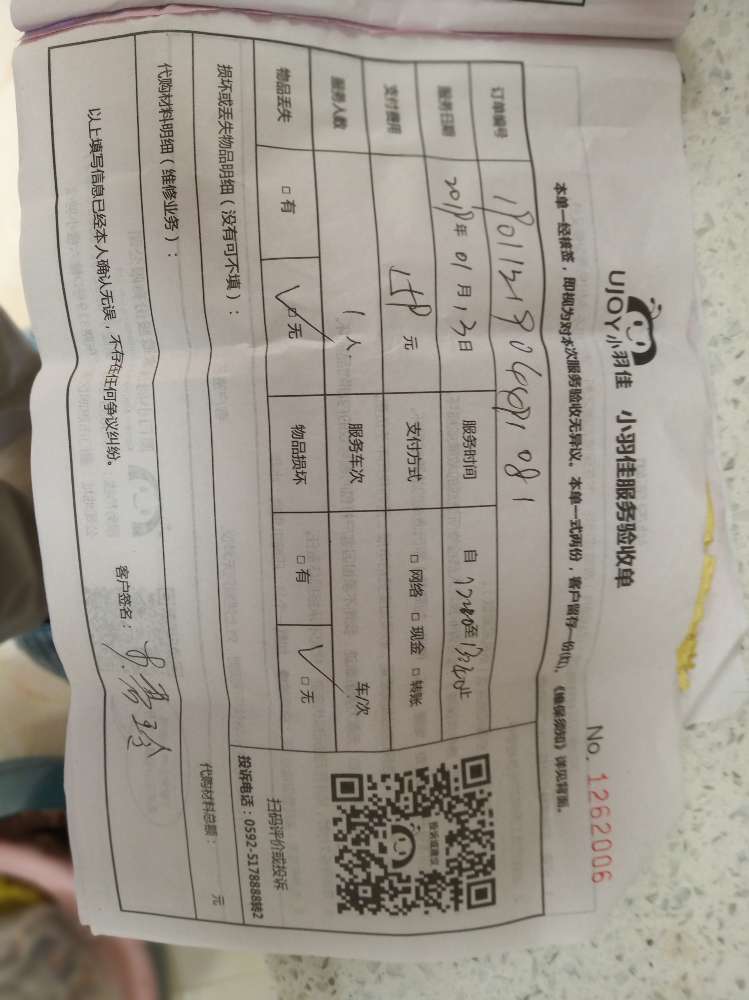 UJOY小羽佳 小羽佳服务验收单
No. 1262006
本单一经核签，即视为对本次服务验收无异议。本单一式两份，客户留存一份(红)。《维保须知》详见背面。
订单编号
服务日期 2018年 01月 13日 服务时间 自 至 止
支付费用 元 支付方式 □ 网络 □ 现金 □ 转账
服务人数 1 人 服务车次 车/次
物品丢失 □ 有 ☑ 无 物品损坏 □ 有 ☑ 无
扫码评价或投诉
投诉电话：0592-5178888转2
损坏或丢失物品明细（没有可不填）：
代购材料明细（维修业务）： 代购材料总额： 元
以上填写信息已经本人确认无误，不存在任何争议纠纷。 客户签名：